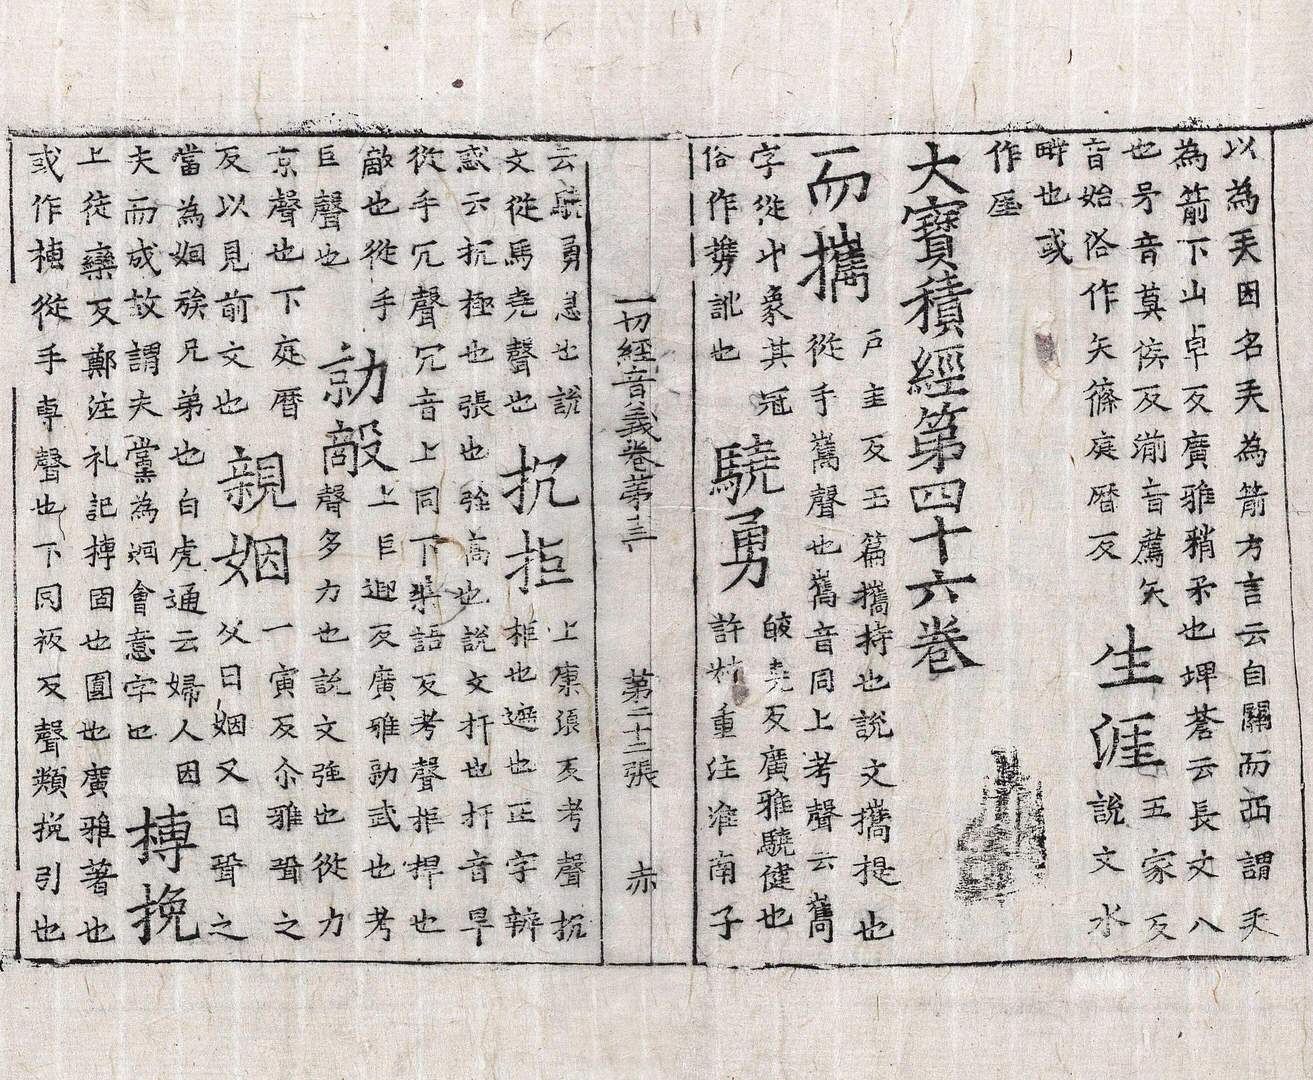 以為天因名天為箭方言云自關而西謂天
為箭下山卓反廣雅矟矛也埤蒼云長文八
也矛音莫侯反湔音薦矢
音始俗作矢篠庭暦反
生涯
五家反
說文水
畔也或
作厓
大寶積經第四十六卷
而攜
戸圭反玉篇攜持也說文攜提也
從手巂聲也巂音同上考聲云巂
字從屮象其冠
俗作携訛也
驍勇
皎堯反廣雅驍健也
許村重注淮南子
一切經音義卷第十三 第二十二張 赤
云驍勇急也說
文從馬堯聲也
抗拒
上康浪反考聲抗
拒也遮也正字辨
惑云抗極也張也強高也說文扞也扞音旱
從手冗聲冗音上同下渠語反考聲拒捍也
敵也從手
巨聲也
勍敵
上巨迎反廣雅勍武也考
聲多力也說文強也從力
京聲也下庭曆
反以見前文也
親姻
一寅反尒雅聟之
父曰姻又曰聟之
當為姻族兄弟也白虎通云婦人因
夫而成故謂夫黨為姻會意字也
摶挽
上徒欒反鄭注礼記摶固也圓也廣雅著也
或作槫從手專聲也下同衩反聲類挽引也